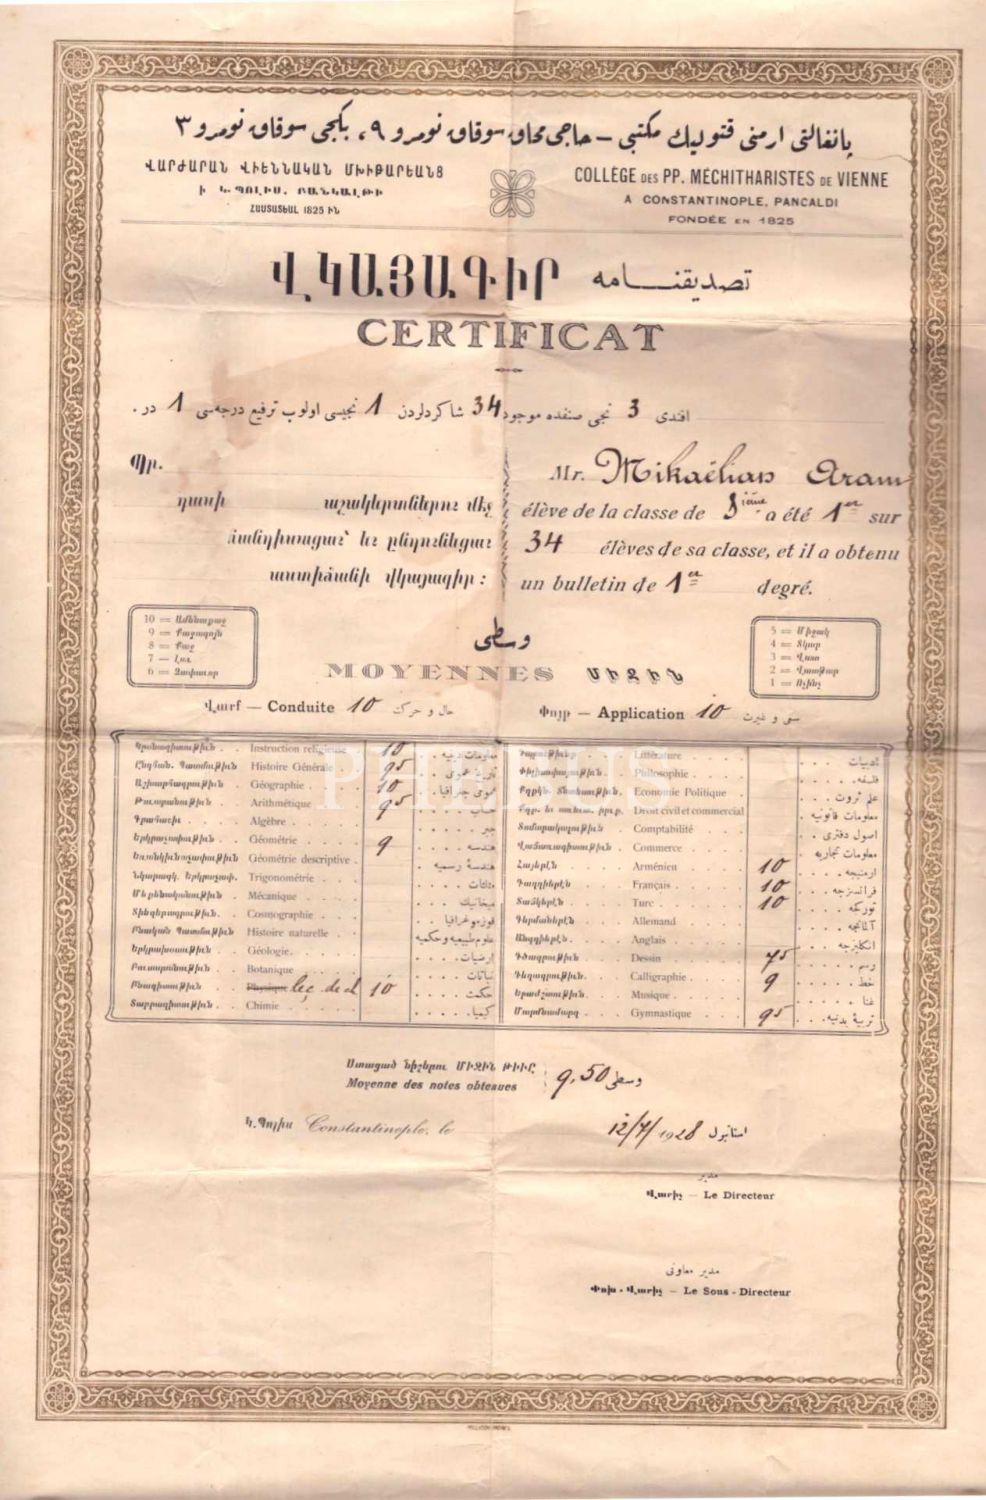 پانغالتی ارمنی قتولیك مكتبی – حاجی محاق سوقاق نومرو ٩، بكجی سوقاق نومرو ٣
ՎԱՐԺԱՐԱՆ ՎԻԵՆՆԱԿԱՆ ՄԽԻԹԱՐԵԱՆՑ
Ի Կ. ՊՈԼԻՍ, ԲԱՆԿԱԼԹԻ
ՀԱՍՏԱՏԵԱԼ 1825 ԻՆ
COLLÈGE DES PP. MÉCHITHARISTES DE VIENNE
A CONSTANTINOPLE, PANCALDI
FONDÉE EN 1825
ՎԿԱՅԱԳԻՐ تصديقنامه
CERTIFICAT
افندی 3 نجی صنفده موجود 34 شاكردلردن 1 نجیسی اولوب ترفیع درجه‌سی 1 در.
Պր.
դասի աշակերտներու մէջ
հանդիսացաւ եւ ընդունեցաւ
աստիճանի վկայագիր :
Mr. Mikaélian Aram
élève de la classe de 3ième a été 1er sur
34 élèves de sa classe, et il a obtenu
un bulletin de 1er degré.
10 = Ամենաքաջ
9 = Քաջագոյն
8 = Քաջ
7 — Լաւ
6 = Չափաւոր
5 = Միջակ
4 = Տկար
3 = Վատ
2 = Վատթար
1 = Ոչինչ
وسطی
MOYENNES ՄԻՋԻՆ
Վարք — Conduite 10 حال و حركت
Փոյթ — Application 10 سعی و غیرت
Կրօնագիտութիւն . . Instruction religieuse 10 معلومات دینیه
Ընդհան. Պատմութիւն Histoire Générale 95 تاریخ عمومی
Աշխարհագրութիւն . Géographie 10 عمومی جغرافیا
Թուաբանութիւն . . Arithmétique 95 حساب
Գրահաշիւ . . . Algèbre . جبر
Երկրաչափութիւն . Géométrie 9 هندسه
Géométrie descriptive . هندسهٔ رسمیه
Trigonométrie . مثلثات
Մեքենականութիւն . Mécanique میخانیك
Տիեզերագրութիւն . Cosmographie قوزموغرافیا
Բնական Պատմութիւն Histoire naturelle علوم طبیعیه و حكمیه
Երկրախօսութիւն . Géologie. ارضیات
Բուսաբանութիւն . Botanique نباتات
Բնագիտութիւն . . Physique leç. de d. 10 حكمت
Տարրագիտութիւն . Chimie . كیمیا
Littérature ادبیات
Philosophie فلسفه
Economie Politique علم ثروت
Droit civil et commercial معلومات قانونیه
Տոմարակալութիւն Comptabilité اصول دفتری
Commerce معلومات تجاریه
Հայերէն Arménien 10 ارمنیجه
Գաղղիերէն Français 10 فرانسزجه
Տաճկերէն Turc 10 توركجه
Գերմաներէն Allemand آلمانجه
Անգղիերէն Anglais انگلیزجه
Գծագրութիւն Dessin 75 رسم
Գեղագրութիւն Calligraphie 9 خط
Երաժշտութիւն Musique غنا
Մարմնամարզ Gymnastique 95 تربیهٔ بدنیه
Ստացած նիշերու ՄԻՋԻՆ ԹԻՒԸ
Moyenne des notes obtenues 9,50 وسطی
Կ. Պոլիս Constantinople, le 12/7/1928 استانبول
مدیر
Վարիչ — Le Directeur
مدیر معاونی
Փոխ - Վարիչ — Le Sous - Directeur
PHEBUS